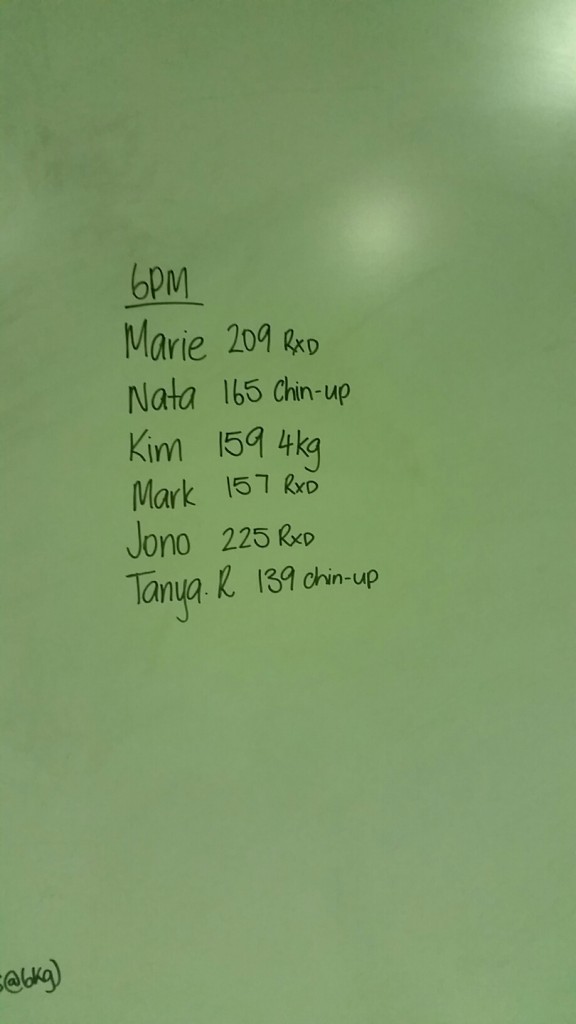 6PM
Marie 209 RxD
Nata 165 Chin-up
Kim 159 4kg
Mark 157 RxD
Jono 225 RxD
Tanya. R 139 chin-up
@6kg)